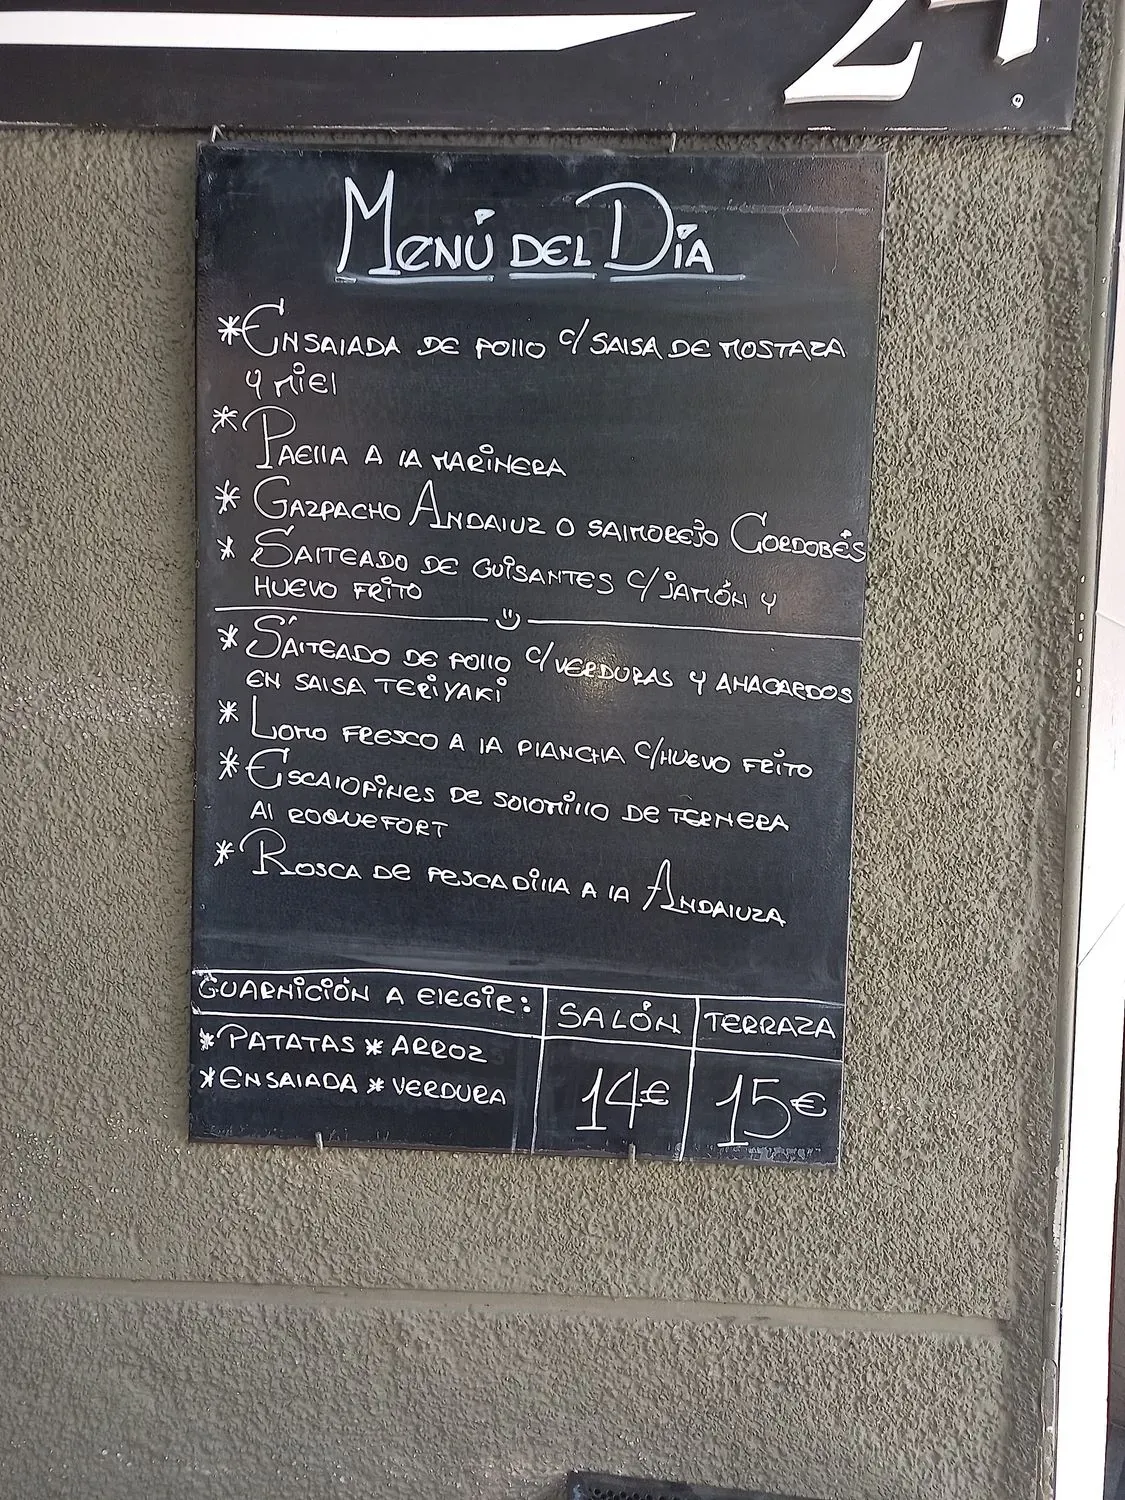 24
Menú del Día
*Ensalada de pollo c/ salsa de mostaza
y miel
* Paella a la marinera
* Gazpacho Andaluz o salmorejo Cordobés
* Salteado de guisantes c/ jamón y
huevo frito
* Salteado de pollo c/ verduras y anacardos
en salsa teriyaki
* Lomo fresco a la plancha c/ huevo frito
* Escalopines de solomillo de ternera
al roquefort
* Rosca de pescadilla a la Andaluza
Guarnición a elegir:
* Patatas * Arroz
* Ensalada * Verdura
Salón
14€
Terraza
15€